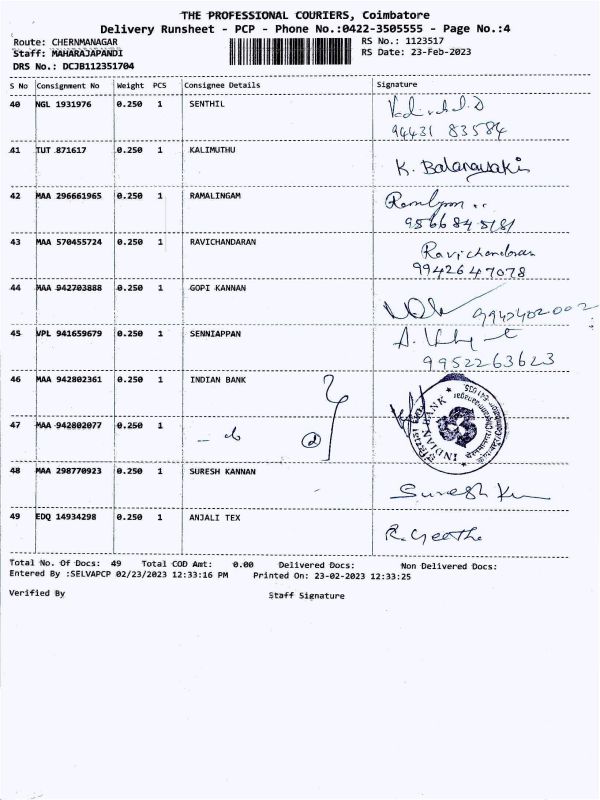 THE PROFESSIONAL COURIERS, Coimbatore
Delivery Runsheet - PCP - Phone No.:0422-3505555 - Page No.:4
Route: CHERNMANAGAR
RS No.: 1123517
Staff: MAHARAJAPANDI
RS Date: 23-Feb-2023
DRS No.: DCJB112351704
S No Consignment No Weight PCS Consignee Details Signature
40 NGL 1931976 0.250 1 SENTHIL
94431 83584
41 TUT 871617 0.250 1 KALIMUTHU
K. Balanayaki
42 MAA 296661965 0.250 1 RAMALINGAM
43 MAA 570455724 0.250 1 RAVICHANDARAN Ravichandaran
9942647078
44 MAA 942703888 0.250 1 GOPI KANNAN
9942402002
45 VPL 941659679 0.250 1 SENNIAPPAN
9952263623
46 MAA 942802361 0.250 1 INDIAN BANK
INDIAN BANK
47 MAA 942802077 0.250 1
48 MAA 298770923 0.250 1 SURESH KANNAN
Suresh
49 EDQ 14934298 0.250 1 ANJALI TEX
R. Geetha
Total No. Of Docs: 49 Total COD Amt: 0.00 Delivered Docs: Non Delivered Docs:
Entered By :SELVAPCP 02/23/2023 12:33:16 PM Printed On: 23-02-2023 12:33:25
Verified By Staff Signature